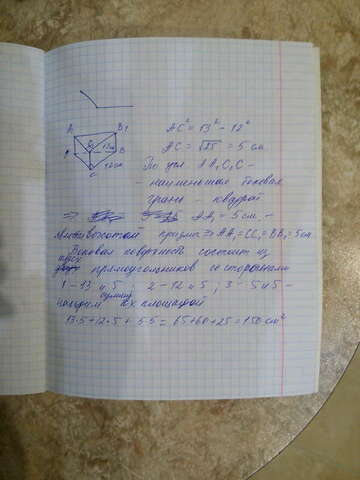 A₁
B₁
C₁
13см
A
B
12см
C
AC² = 13² - 12²
AC = √25 = 5 см
По усл AA₁C₁C -
- наименьшая боковая
грань - квадрат
⇒ AA₁ = 5 см -
высотой призмы ⇒ AA₁ = CC₁ = BB₁ = 5см
Боковая повертность состоит из
трёх прямоугольников со сторонами
1 - 13 и 5 ; 2 - 12 и 5 ; 3 - 5 и 5 -
найдем сумму их площадей
13·5 + 12·5 + 5·5 = 65 + 60 + 25 = 150 см²